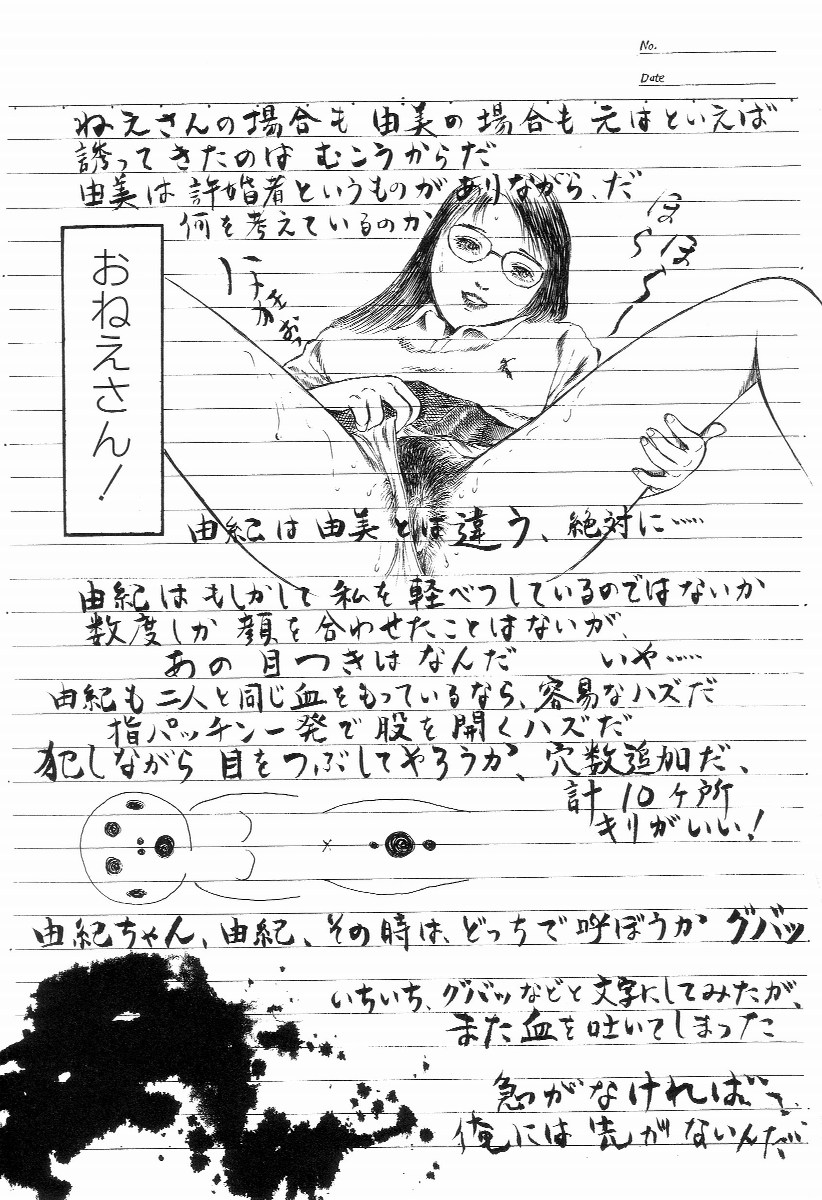 No.
Date
ねえさんの場合も 由美の場合も 元はといえば
誘ってきたのは むこうからだ
由美は許婚者というものがありながら、だ
何を考えているのか
おねえさん!
ほ〜らほ〜ら
由紀は由美とは違う、絶対に……
由紀はもしかして 私を軽べつしているのではないか
数度しか顔を合わせたことはないが、
あの目つきはなんだ いや……
由紀も二人と同じ血をもっているなら、容易なハズだ
指パッチン一発で股を開くハズだ
犯しながら目をつぶしてやろうか、穴数追加だ、
計10ヶ所
キリがいい!
由紀ちゃん、由紀、その時は、どっちで呼ぼうか グバッ
いちいち、グバッなどと文字にしてみたが、
また血を吐いてしまった
急がなければ…て、
俺には先がないんだ…